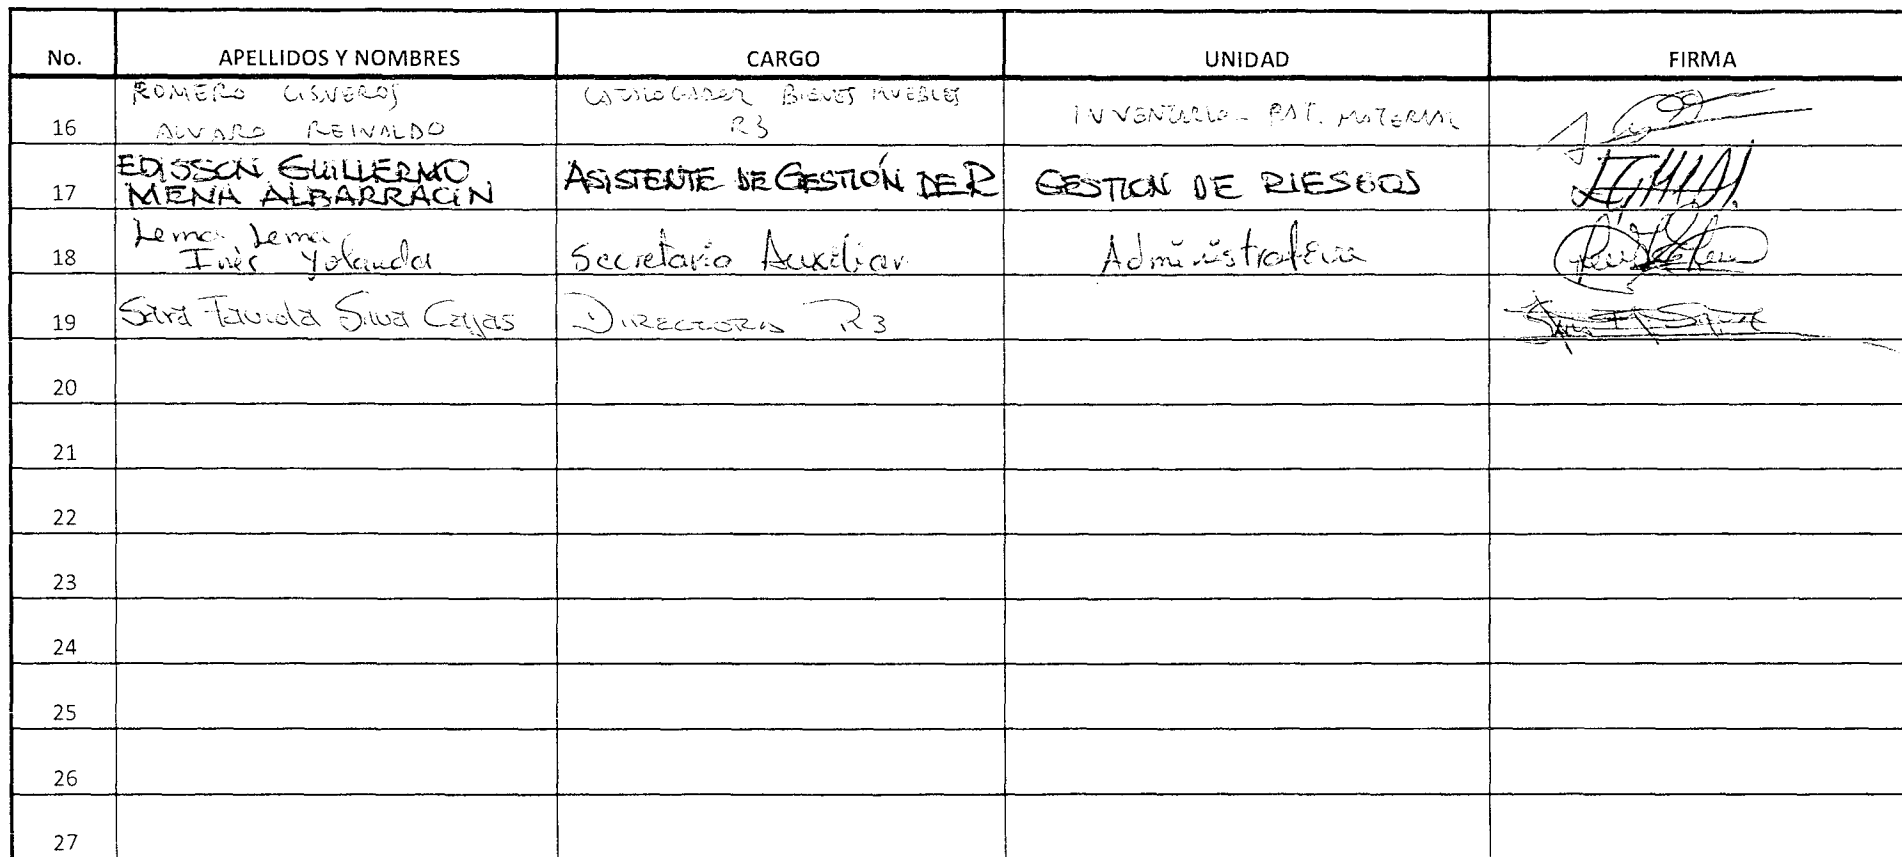 No. APELLIDOS Y NOMBRES CARGO UNIDAD FIRMA
ROMERO CISNEROS CATALOGADOR BIENES MUEBLES
16 ALVARO REINALDO R3 INVENTARIO PAT. MATERIAL
EDISSON GUILLERMO
17 MENA ALBARRACIN ASISTENTE DE GESTIÓN DE R GESTION DE RIESGOS
Lema Lema
18 Inés Yolanda Secretaria Auxiliar Administrativa
19 Sara Silva Cajas DIRECTORA R3
20
21
22
23
24
25
26
27